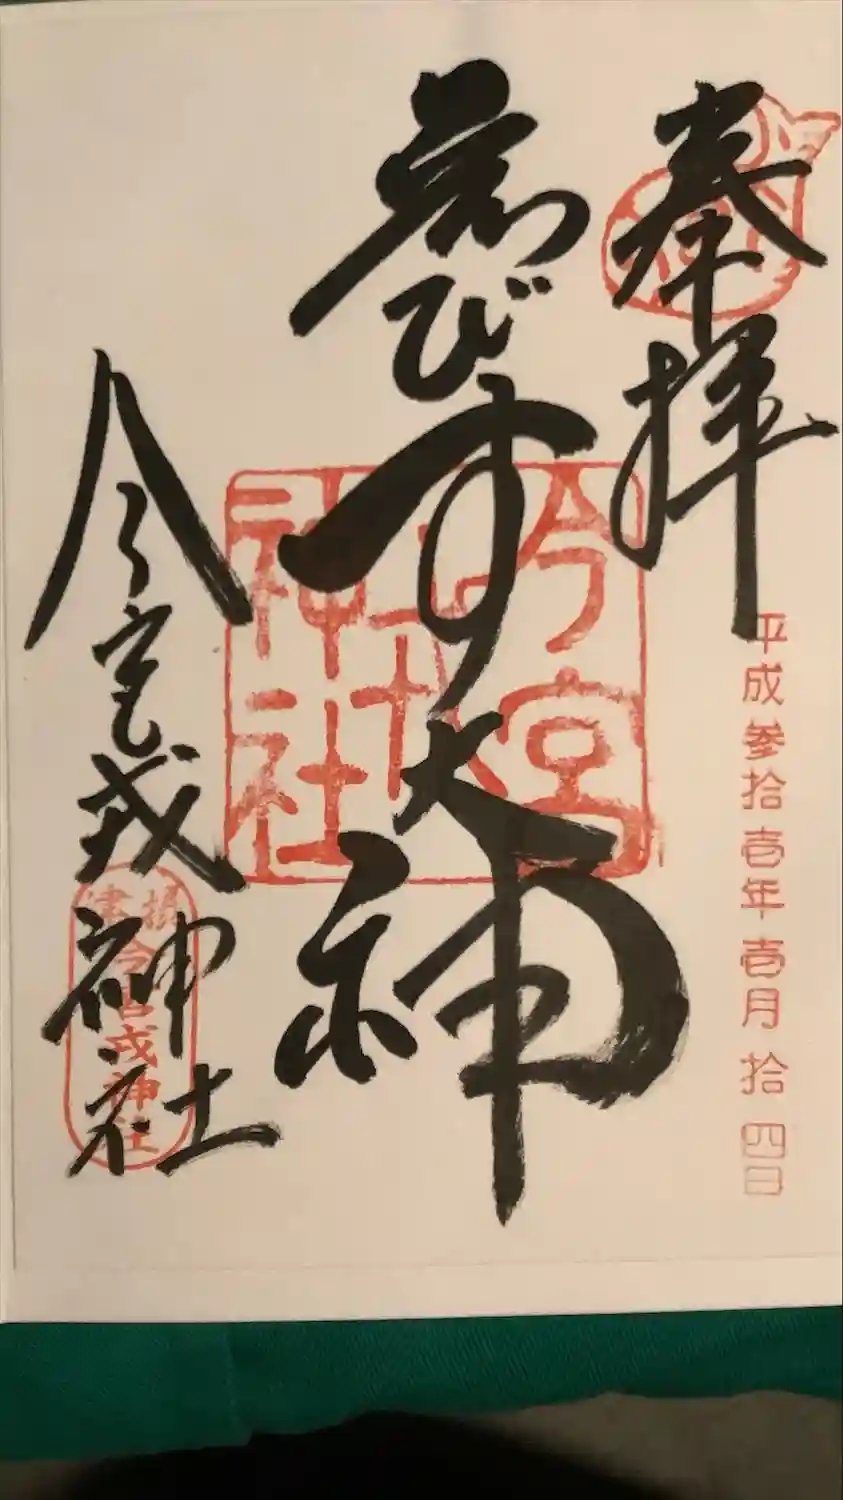 奉拝
平成参拾壱年壱月拾四日
びす大神
今宮戎神社
今宮戎神社
摂津
今宮戎神社